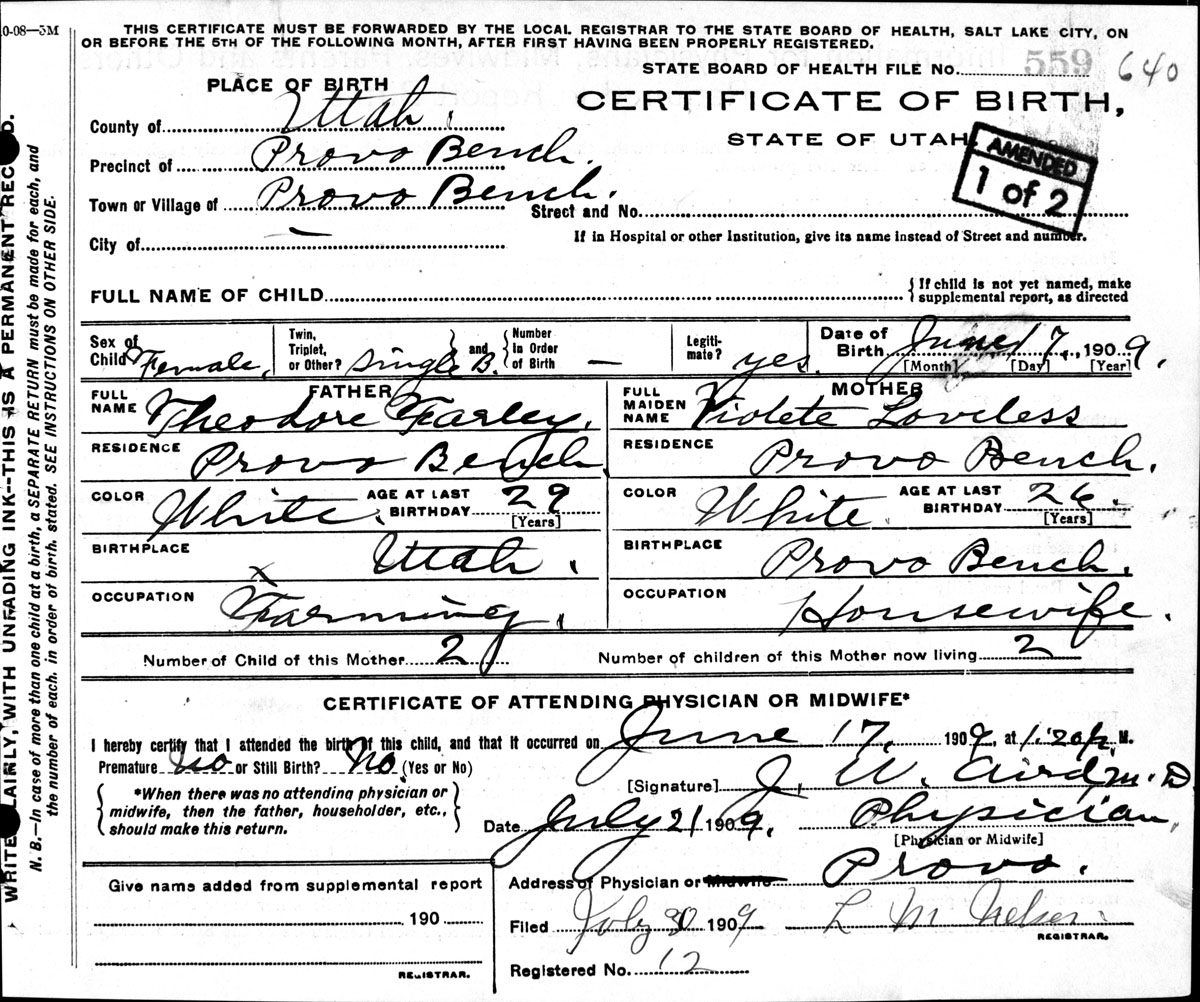 0-08—5M
THIS CERTIFICATE MUST BE FORWARDED BY THE LOCAL REGISTRAR TO THE STATE BOARD OF HEALTH, SALT LAKE CITY, ON
OR BEFORE THE 5TH OF THE FOLLOWING MONTH, AFTER FIRST HAVING BEEN PROPERLY REGISTERED.
STATE BOARD OF HEALTH FILE No. 559 640
PLACE OF BIRTH
CERTIFICATE OF BIRTH,
STATE OF UTAH.
AMENDED
1 of 2
County of Utah.
Precinct of Provo Bench.
Town or Village of Provo Bench.
Street and No.
City of —
If in Hospital or other Institution, give its name instead of Street and number.
FULL NAME OF CHILD
{ If child is not yet named, make
supplemental report, as directed
Sex of Child Female.
Twin, Triplet, or Other? Single B. } and { Number In Order of Birth —
Legiti-mate? yes.
Date of Birth June 17, 1909.
[Month] [Day] [Year]
FATHER
FULL NAME Theodore Farley.
RESIDENCE Provo Bench
COLOR White. AGE AT LAST BIRTHDAY 29
[Years]
BIRTHPLACE Utah.
OCCUPATION Farming.
MOTHER
FULL MAIDEN NAME Violete Loveless
RESIDENCE Provo Bench.
COLOR White. AGE AT LAST BIRTHDAY 26.
[Years]
BIRTHPLACE Provo Bench.
OCCUPATION Housewife.
Number of Child of this Mother 2 Number of children of this Mother now living 2
CERTIFICATE OF ATTENDING PHYSICIAN OR MIDWIFE*
I hereby certify that I attended the birth of this child, and that it occurred on June 17, 1909, at 1:20 p. M.
Premature No or Still Birth? No. (Yes or No)
[Signature] J. W. Aird M.D
{ *When there was no attending physician or
midwife, then the father, householder, etc.,
should make this return. }
Date July 21 1909. Physician,
[Physician or Midwife]
Address of Physician or Midwife Provo.
Give name added from supplemental report
190
REGISTRAR.
Filed July 30 1909 L M Nelson.
REGISTRAR.
Registered No. 12
WRITE PLAINLY, WITH UNFADING INK--THIS IS A PERMANENT RECORD.
N. B.—In case of more than one child at a birth, a SEPARATE RETURN must be made for each, and
the number of each, in order of birth, stated. SEE INSTRUCTIONS ON OTHER SIDE.